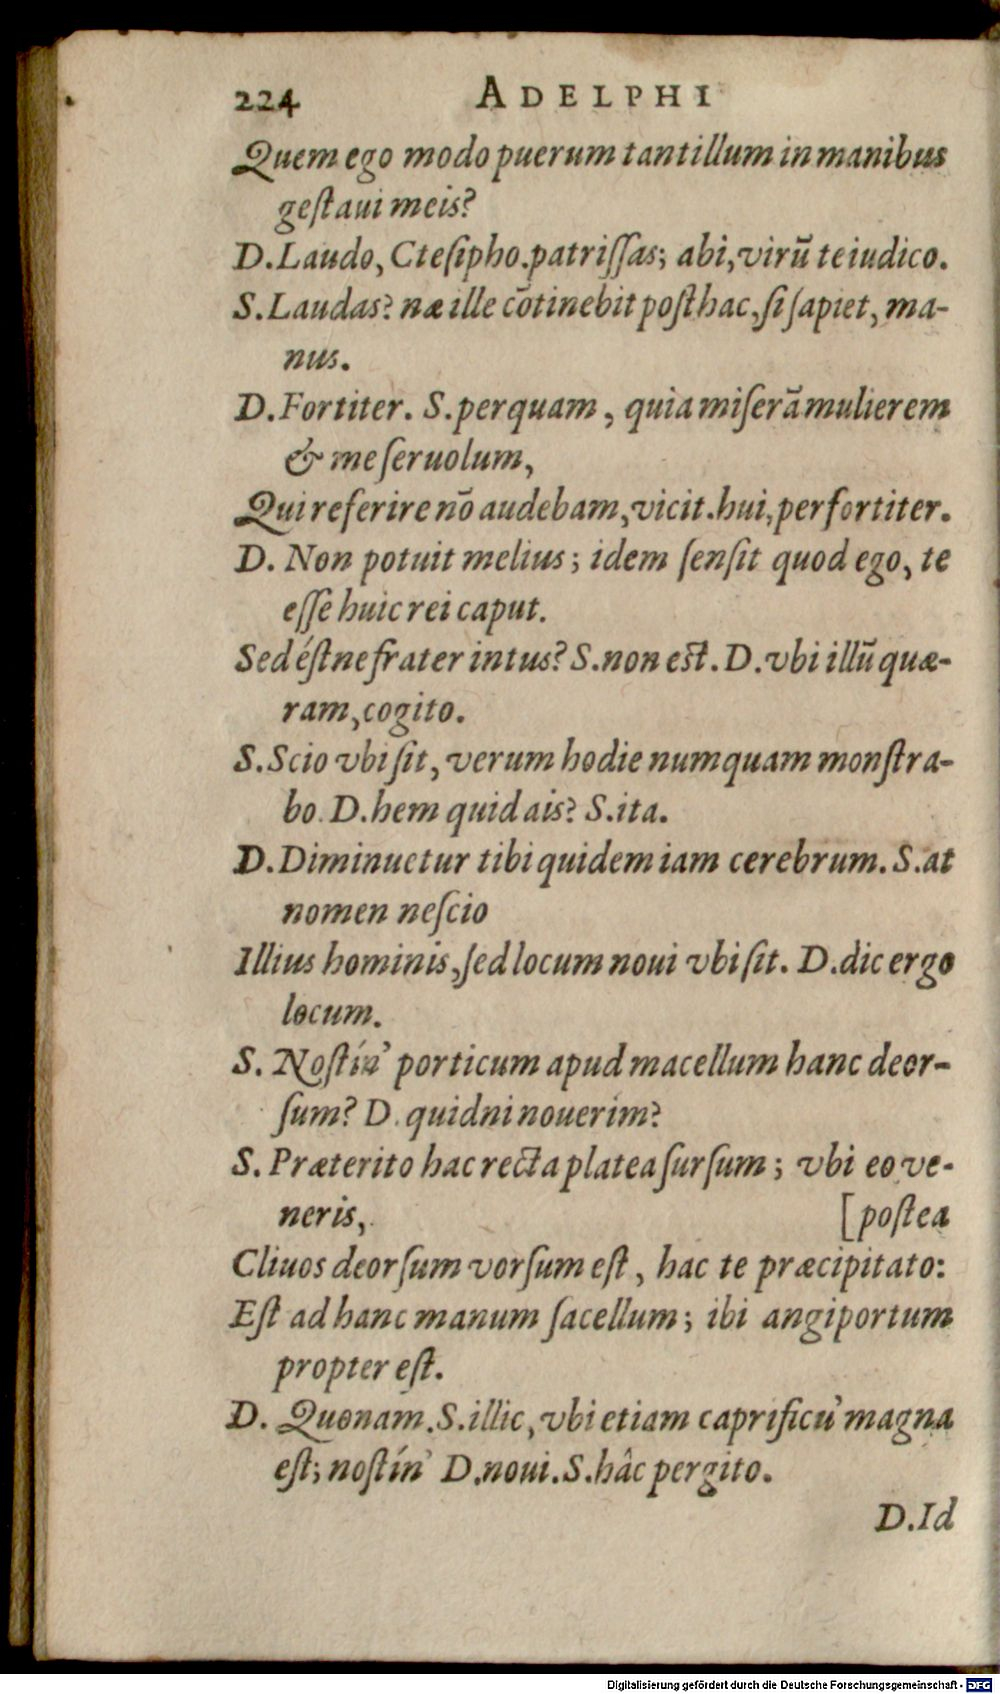 224 ADELPHI
Quem ego modo puerum tantillum in manibus
geſtaui meis?
D. Laudo, Cteſipho. patriſſas; abi, virū te iudico.
S. Laudas? næ ille cōtinebit poſthac, ſi ſapiet, ma-
nus.
D. Fortiter. S. perquam, quia miſerā mulierem
& me ſeruolum,
Qui referire nō audebam, vicit. hui, perfortiter.
D. Non potuit melius; idem ſenſit quod ego, te
eſſe huic rei caput.
Sed éſtne frater intus? S. non est. D. vbi illū quæ-
ram, cogito.
S. Scio vbi ſit, verum hodie numquam monſtra-
bo. D. hem quid ais? S. ita.
D. Diminuetur tibi quidem iam cerebrum. S. at
nomen neſcio
Illius hominis, ſed locum noui vbi ſit. D. dic ergo
locum.
S. Noſtín' porticum apud macellum hanc deor-
ſum? D. quidni nouerim?
S. Præterito hac recta platea ſurſum; vbi eo ve-
neris, [poſtea
Cliuos deorſum vorſum eſt, hac te præcipitato:
Eſt ad hanc manum ſacellum; ibi angiportum
propter eſt.
D. Quonam. S. illic, vbi etiam caprificu' magna
eſt; noſtín' D. noui. S. hâc pergito.
D. Id
Digitalisierung gefördert durch die Deutsche Forschungsgemeinschaft - DFG